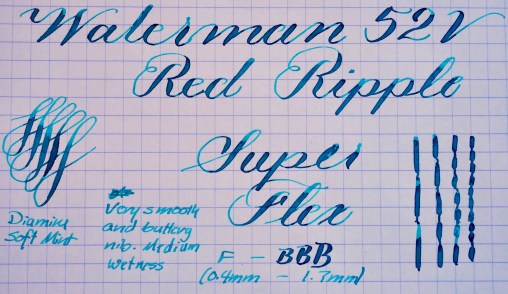 Waterman 52V
Red Ripple
Super
Flex
Diamine
Soft Mint
Very smooth
and buttery
nib. Medium
wetness
F - BBB
(0.4mm - 1.7mm)